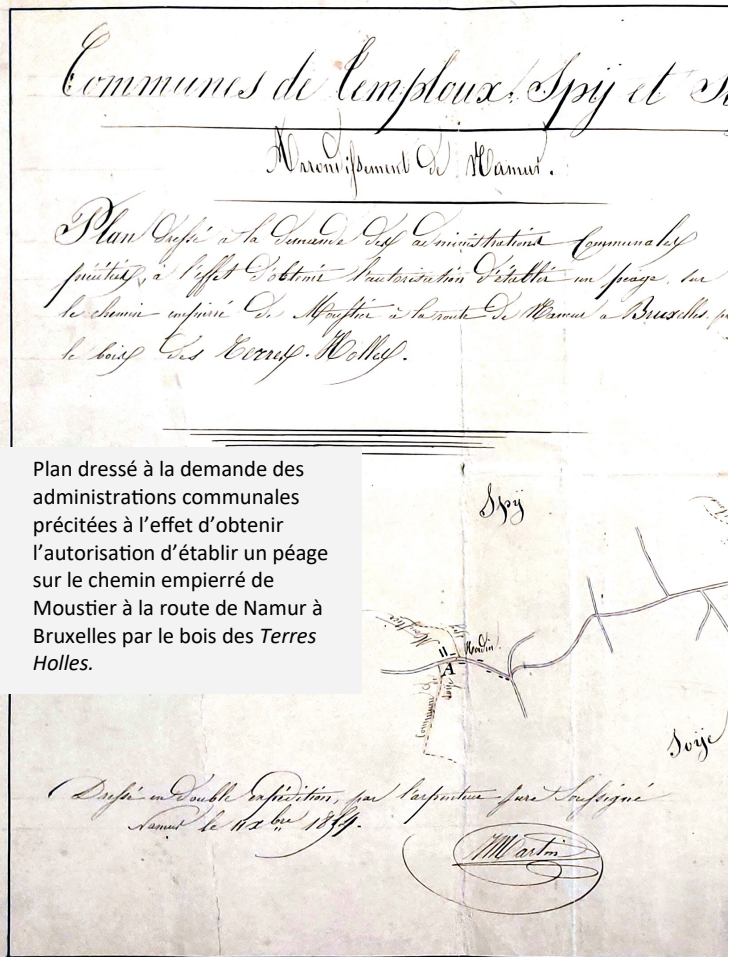 Communes de Temploux. Spÿ et
Arrondissement de Namur.
Plan dressé à la demande des administrations Communales
précitées, à l'effet d'obtenir l'autorisation d'établir un péage, sur
le chemin empierré de Moustier à la route de Namur a Bruxelles
le bois des Terres-Holles.
Plan dressé à la demande des
administrations communales
précitées à l'effet d'obtenir
l'autorisation d'établir un péage
sur le chemin empierré de
Moustier à la route de Namur à
Bruxelles par le bois des Terres
Holles.
Spÿ
Moustier
Spÿ
Moulin
A
Commune de
Soÿe
Soÿe
Dressé en Double expédition, par l'arpenteur juré Soussigné
Namur le xbre
Martin